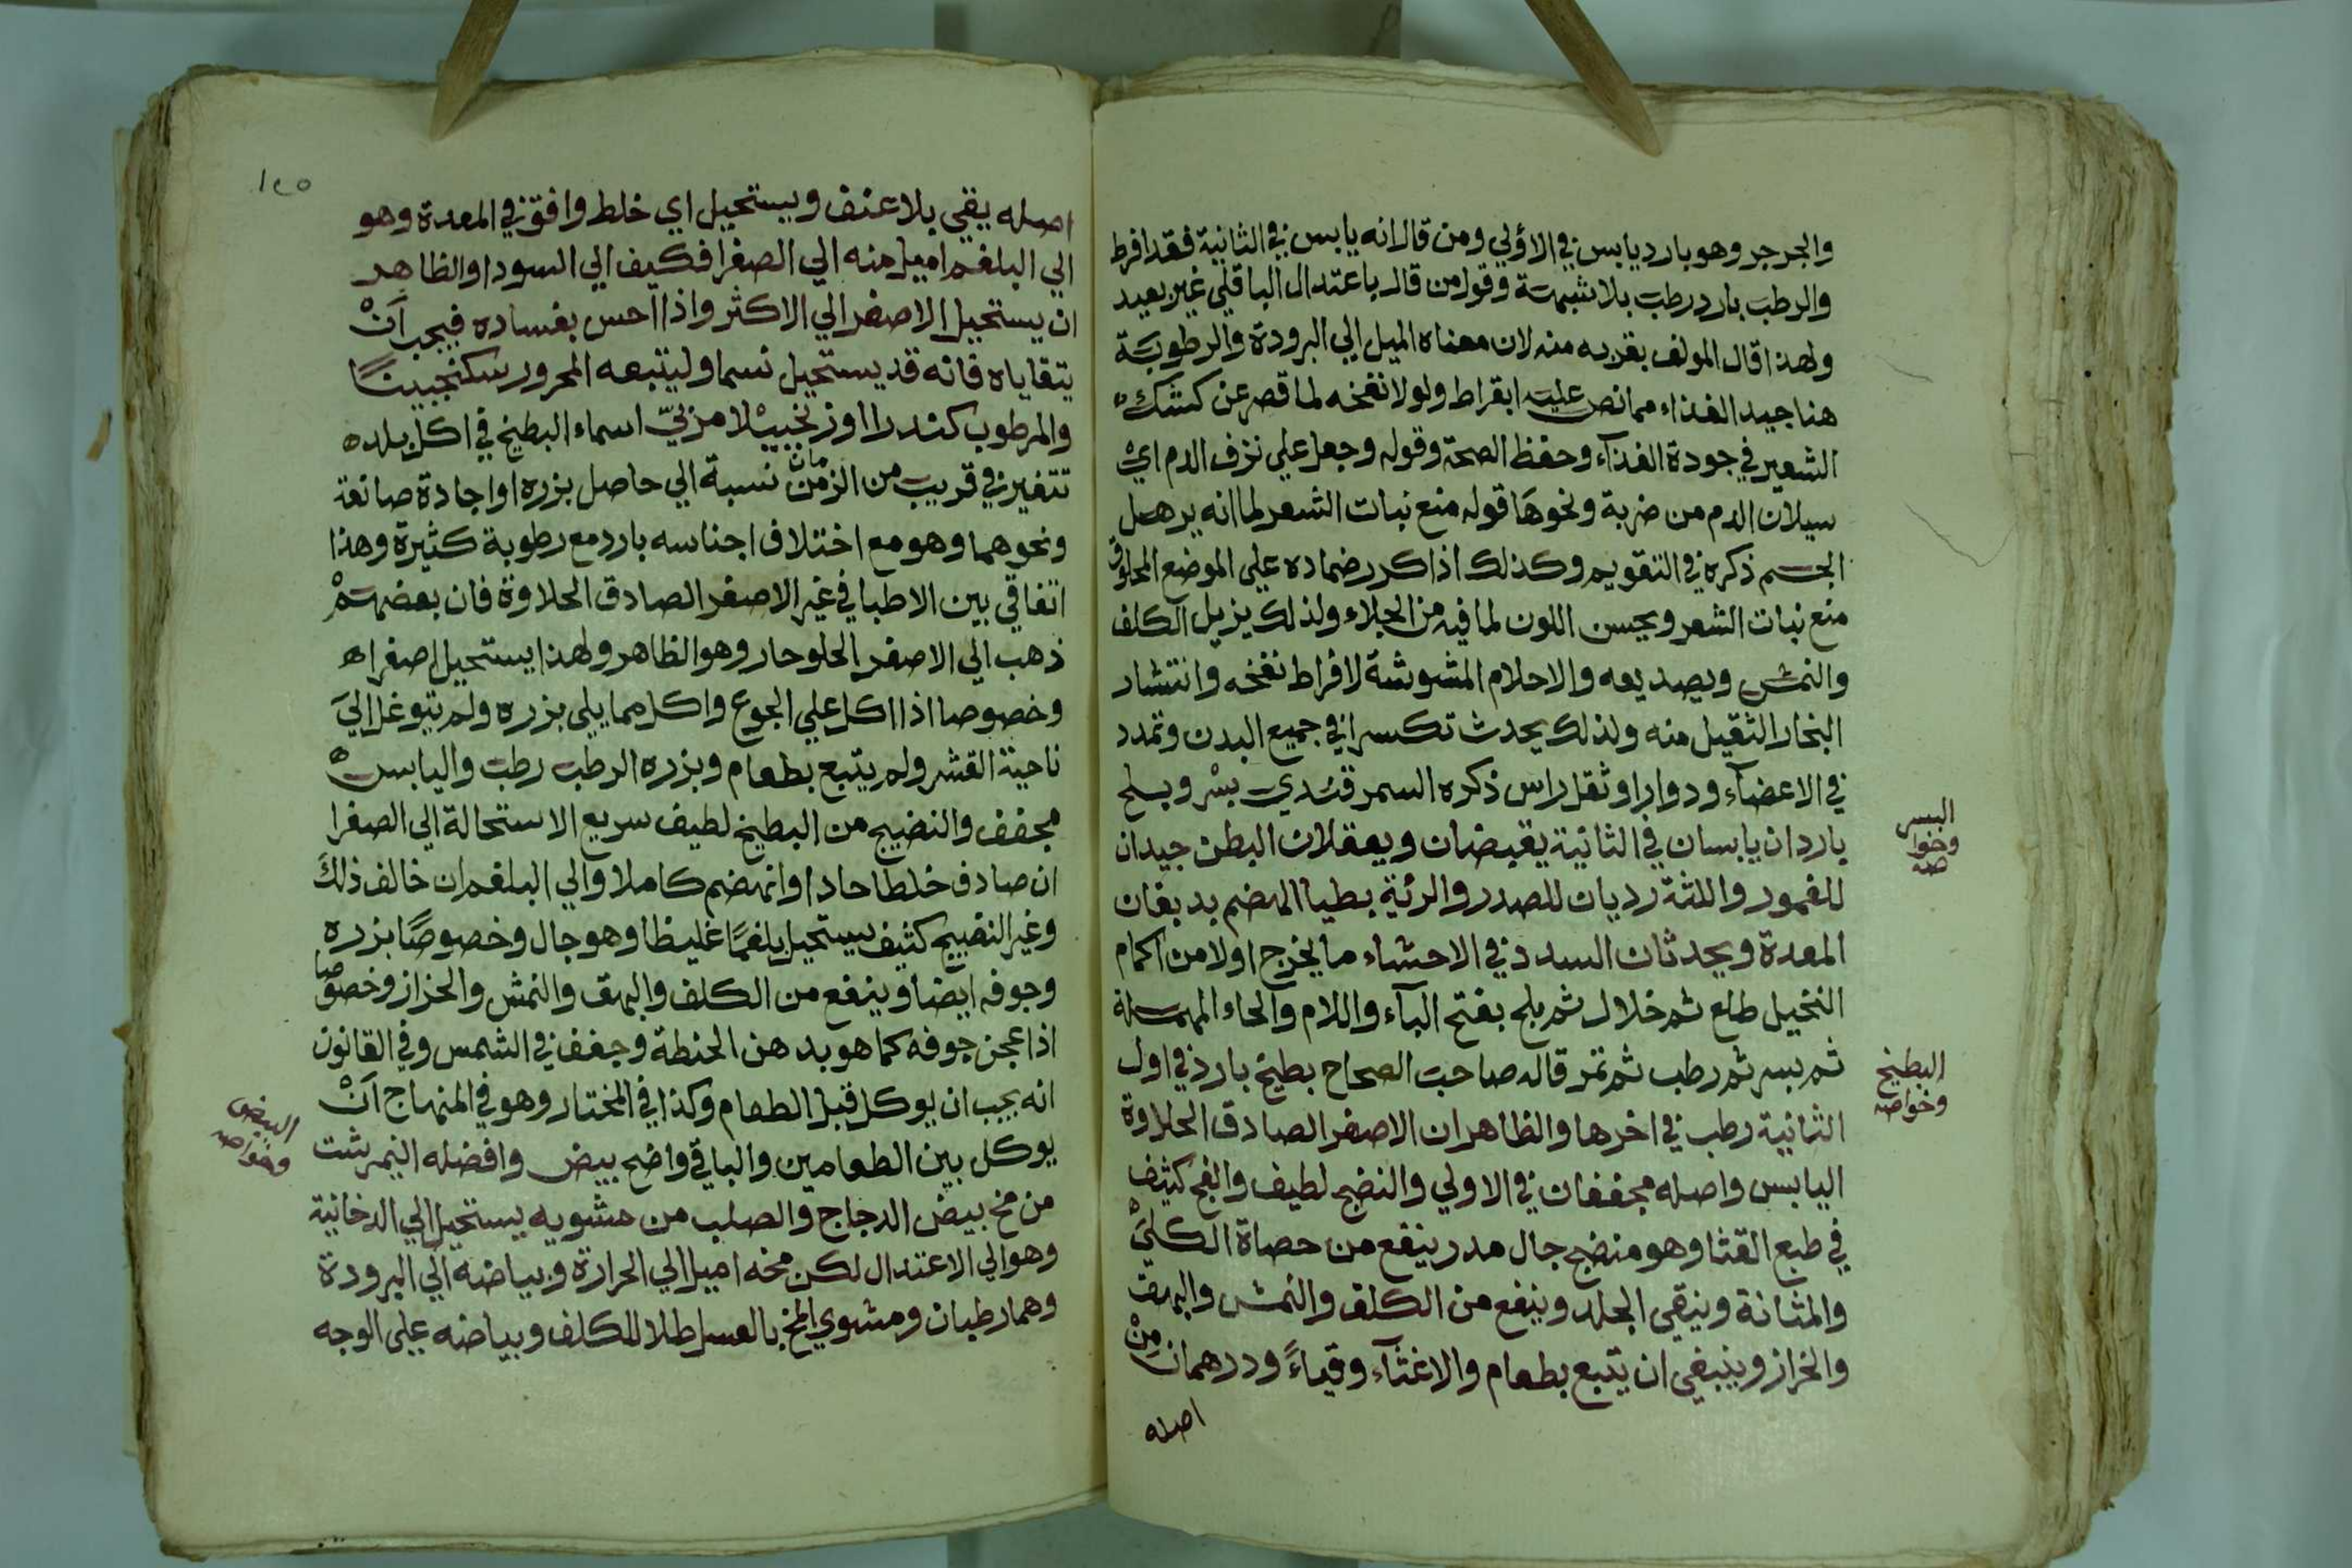 والجرجر وهو بارد يابس في الاولي ومن قال انه يابس في الثانية فقد افرط
والرطب بارد رطب بلا شبهة وقول من قال باعتدال الباقلي غير بعيد
ولهذا قال المولف بقربه منه لان معناه الميل الي البرودة والرطوبة
هنا جيد الغذاء مما نص عليه ابقراط ولولا نفخه لما قصر عن كشك
الشعير في جودة الغذآء وحفظ الصحة وقوله وجعل علي نزف الدم اي
سيلان الدم من ضربة ونحوها قوله منع نبات الشعر لما انه يرهل
الجسم ذكره في التقويم وكذلك اذا كرر ضماده علي الموضع المحلوق
منع نبات الشعر ويحسن اللون لما فيه من الجلاء ولذلك يزيل الكلف
والنمش ويصد يعه والاحلام المشوشة لافراط نفخه وانتشار
البخار الثقيل منه ولذلك يحدث تكسرا في جميع البدن وتمدد
في الاعضآء ودوارا وثقل راس ذكره السمرقندي بسر وبلح
باردان يابسان في الثانية يقبضان ويعقلان البطن جيدان
للغمور واللثة رديان للصدر والرئة بطيا الهضم يدبغان
المعدة ويحدثان السدد في الاحشاء ما يخرج اولا من اكمام
النخيل طلع ثم خلال ثم بلح بفتح البآء واللام والحاء المهملة
ثم بسر ثم رطب ثم تمر قاله صاحب الصحاح بطيخ بارد في اول
الثانية رطب في اخرها والظاهر ان الاصفر الصادق الحلاوة
اليابس واصله مجففان في الاولي والنضج لطيف والفج كثيف
في طبع القثا وهو منضج جال مدر ينفع من حصاة الكلي
والمثانة وينقي الجلد وينفع من الكلف والنمش والبهق
والحزاز وينبغي ان يتبع بطعام والا غثآء وقياءً ودرهمان مِنْ
اصله
البسر
وخوا
صه
البطيخ
وخواصه
١٢٥
اصله يقي بلا عنف ويستحيل اي خلط وافق في المعدة وهو
الي البلغم اميل منه الي الصفرا فكيف الي السودا والظاهر
ان يستحيل الاصفر الي الاكثر واذا احس بفساده فيجب اَنْ
يتقاياه فانه قد يستحيل سما وليتبعه المحرور سكنجبينا
والمرطوب كندرا او زنجبيلا مربيّ اسماء البطيخ في اكل بلده
تتغير في قريب من الزمن مان نسبة الي حاصل بزره او اجادة صانعة
ونحوهما وهو مع اختلاف اجناسه بارد مع رطوبة كثيرة وهذا
اتفاقي بين الاطبا في غير الاصفر الصادق الحلاوة فان بعضهم
ذهب الي الاصفر الحلو حار وهو الظاهر ولهذا يستحيل صفرا
وخصوصا اذا اكل علي الجوع واكل مما يلي بزره ولم يتوغل الي
ناحية القشر ولم يتبع بطعام وبزره الرطب رطب واليابس
مجفف والنضيج من البطيخ لطيف سريع الاستحالة الي الصفرا
ان صادف خلطا حادا او انهضم كاملا والي البلغم ان خالف ذلك
وغير النضيج كثيف يستحيل بلغمًا غليظا وهو جال وخصوصًا بزره
وجوفه ايضا وينفع من الكلف والبهق والنمش والحزاز وخصوصا
اذا عجن جوفه كما هو بدهن الحنطة وجفف في الشمس وفي القانون
انه يجب ان يوكل قبل الطعام وكذا في المختار وهو في المنهاج اَنْ
يوكل بين الطعامين والباقي واضح بيض وافضله النيمرشت
من مخ بيض الدجاج والصلب من مشويه يستحيل الي الدخانية
وهو الي الاعتدال لكن مخه اميل الي الحرارة وبياضه الي البرودة
وهما رطبان ومشوي المخ بالعسل طلا للكلف وبياضه علي الوجه
البيض
وخواصه